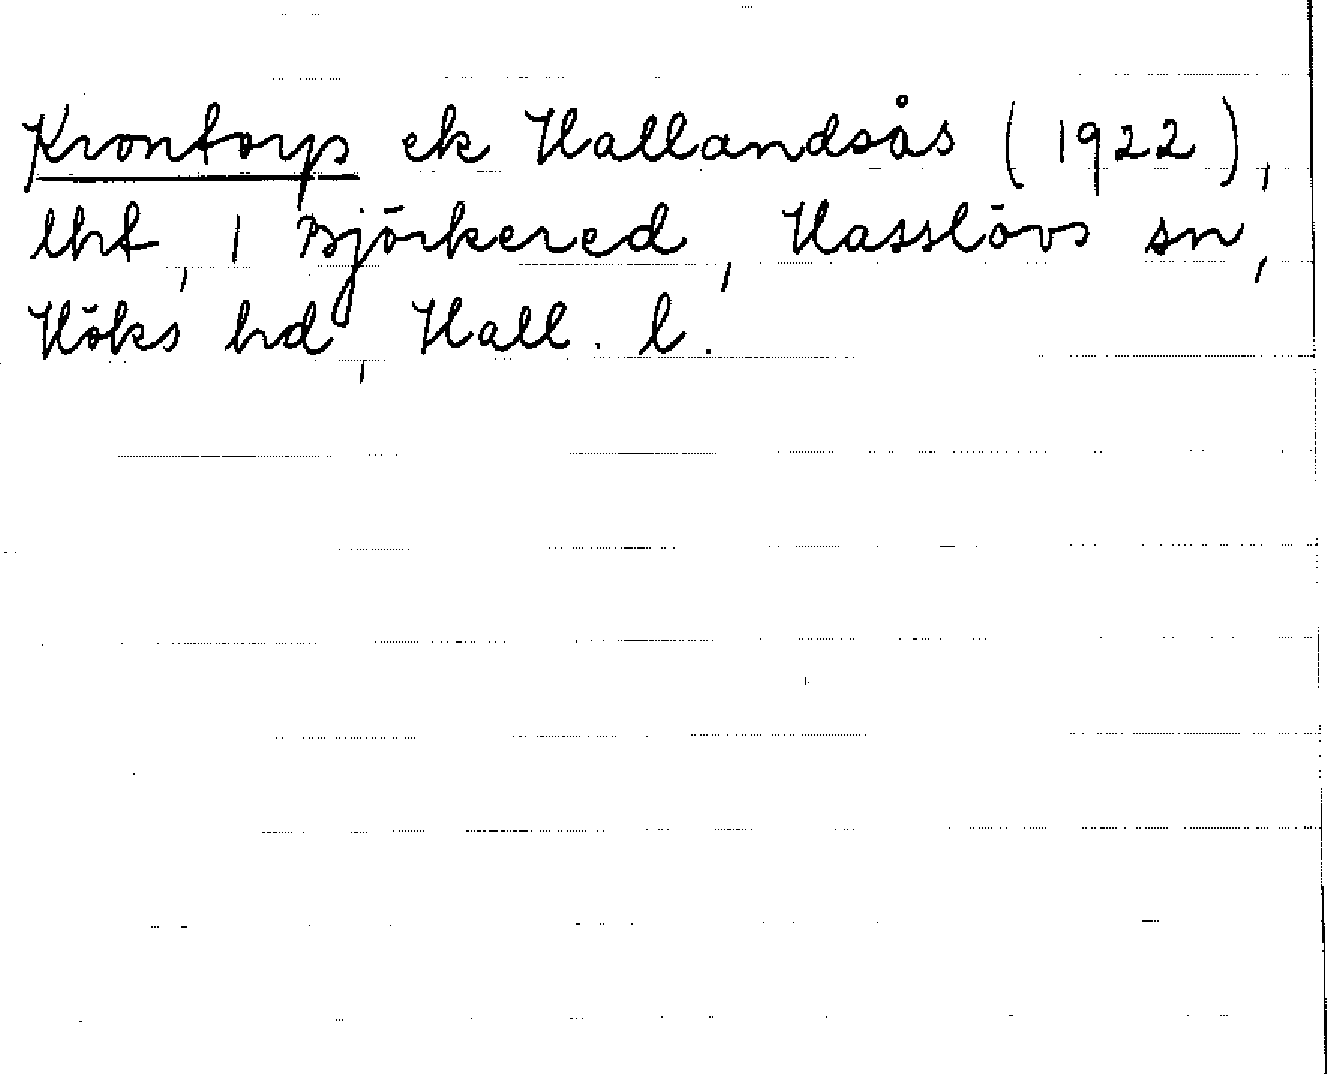 Krontorp ek Hallandsås (1922),
lht, 1 Björkered, Hasslövs sn,
Höks hd, Hall. l.